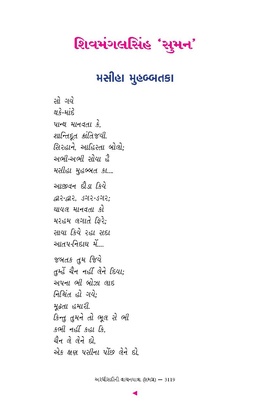 શિવમંગલસિંહ ‘સુમન’
મસીહા મુહબ્બતકા
સો ગયે
થકે-માંદે
પાન્થ માનવતા કે,
શાન્તિદૂત ક્રાંતિજવી.
સિરહાને, આહિસ્તા બોલો;
અભી-અભી સોયા હૈ
મસીહા મુહબ્બત કા...
આજીવન દૌડા કિયે
દ્વાર-દ્વાર, ડગર-ડગર;
ઘાયલ માનવતા કો
મરહમ લગાતે ફિરે;
સાયા કિયે રહા સદા
આતપ-નિદાઘ મેં...
જબતક તુમ જિયે
તુમ્હેં ચૈન નહીં લેને દિયા;
અપના ભી બોઝા લાદ
નિશ્ચિંત હો ગયે;
મૂઢતા હમારી.
કિન્તુ તુમને તો ભૂલ સે ભી
કભી નહીં કહા કિ,
ચૈન લે લેને દો,
એક ક્ષણ પસીના પોંછ લેને દો.
અરધીસદીની વાચનયાત્રા (છબર) — 3119